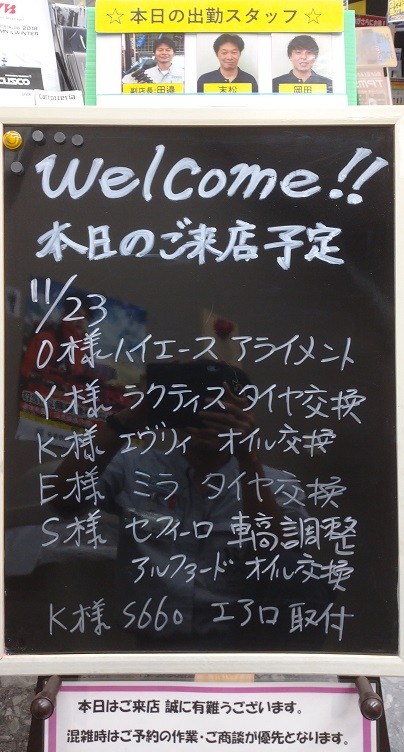 ☆ 本日の出勤スタッフ ☆
副店長:田邉
末松
岡田
CUSCO
Welcome!!
本日のご来店予定
11/23
O様 ハイエース アライメント
Y様 ラクティス タイヤ交換
K様 エヴリィ オイル交換
E様 ミラ タイヤ交換
S様 セフィーロ 車高調整
アルファード オイル交換
K様 S660 エアロ 取付
本日はご来店 誠に有難うございます。
混雑時はご予約の作業・ご商談が優先となります。